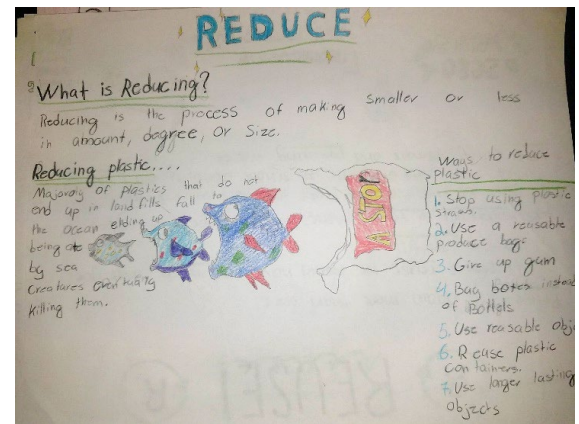 REDUCE
What is Reducing?
Reducing is the process of making smaller or less
in amount, degree, or size.
Reducing plastic....
Majoraty of plastics that do not
end up in land fills fall to
the ocean ending up
being ate
by sea
creatures eventually
killing them.
Ways to reduce
plastic
1. Stop using plastic
straws.
2. Use a reusable
produce bag
3. Give up gum
4. Buy boxes instead
of Bottels
5. Use reasable obj
6. Reuse plastic
containers.
7. Use larger lasting
objects
REUSE!